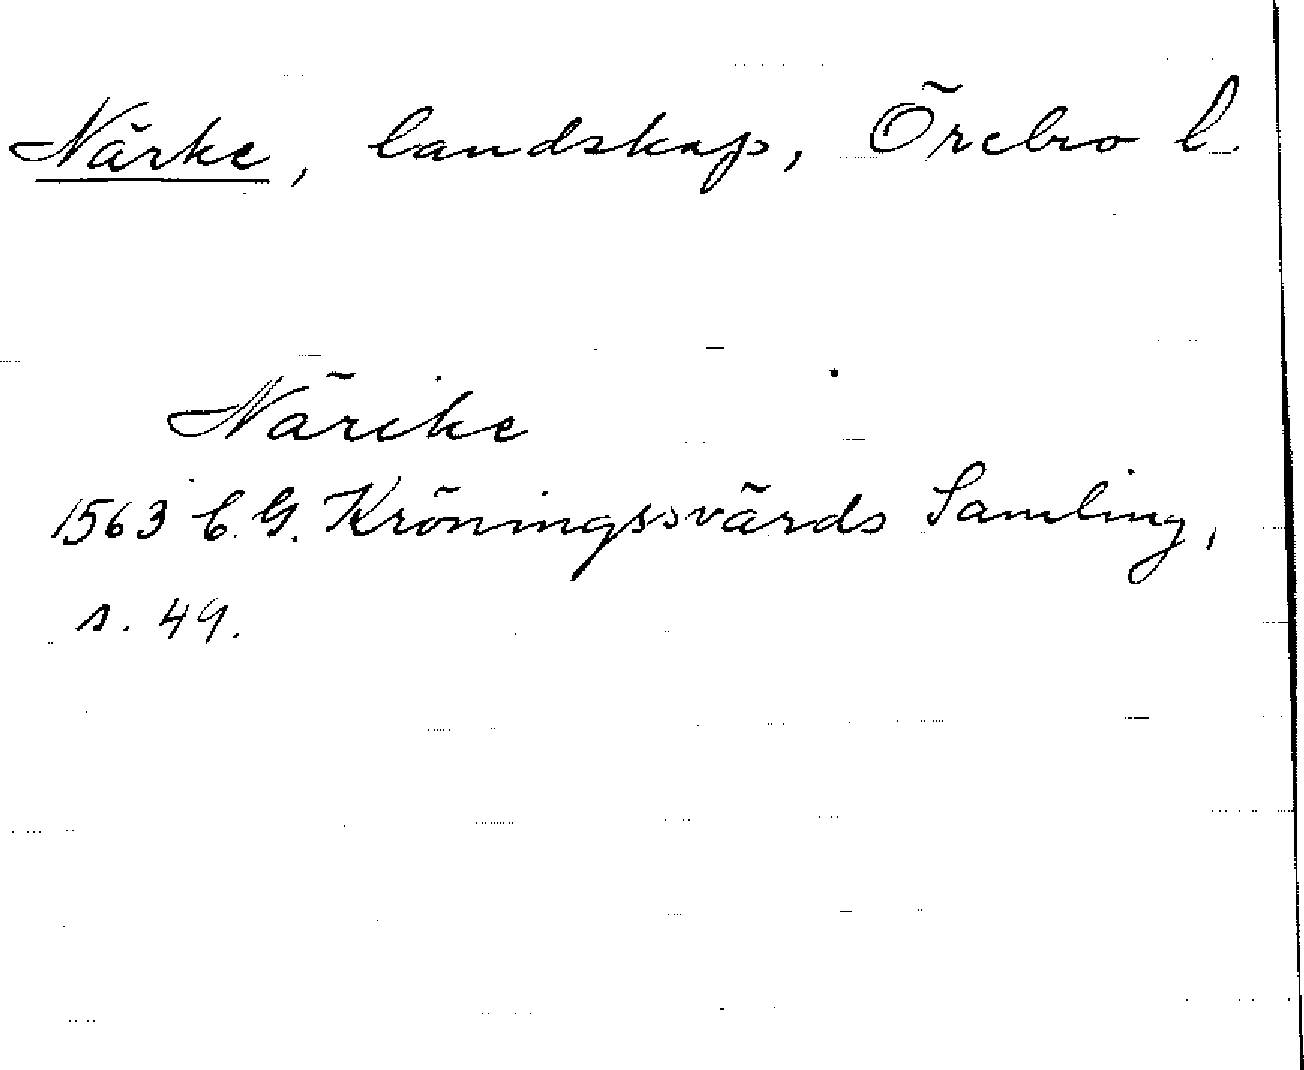 Närke, landskap, Örebro l.
Närike
1563 C. G. Kröningssvärds Samling,
s. 49.